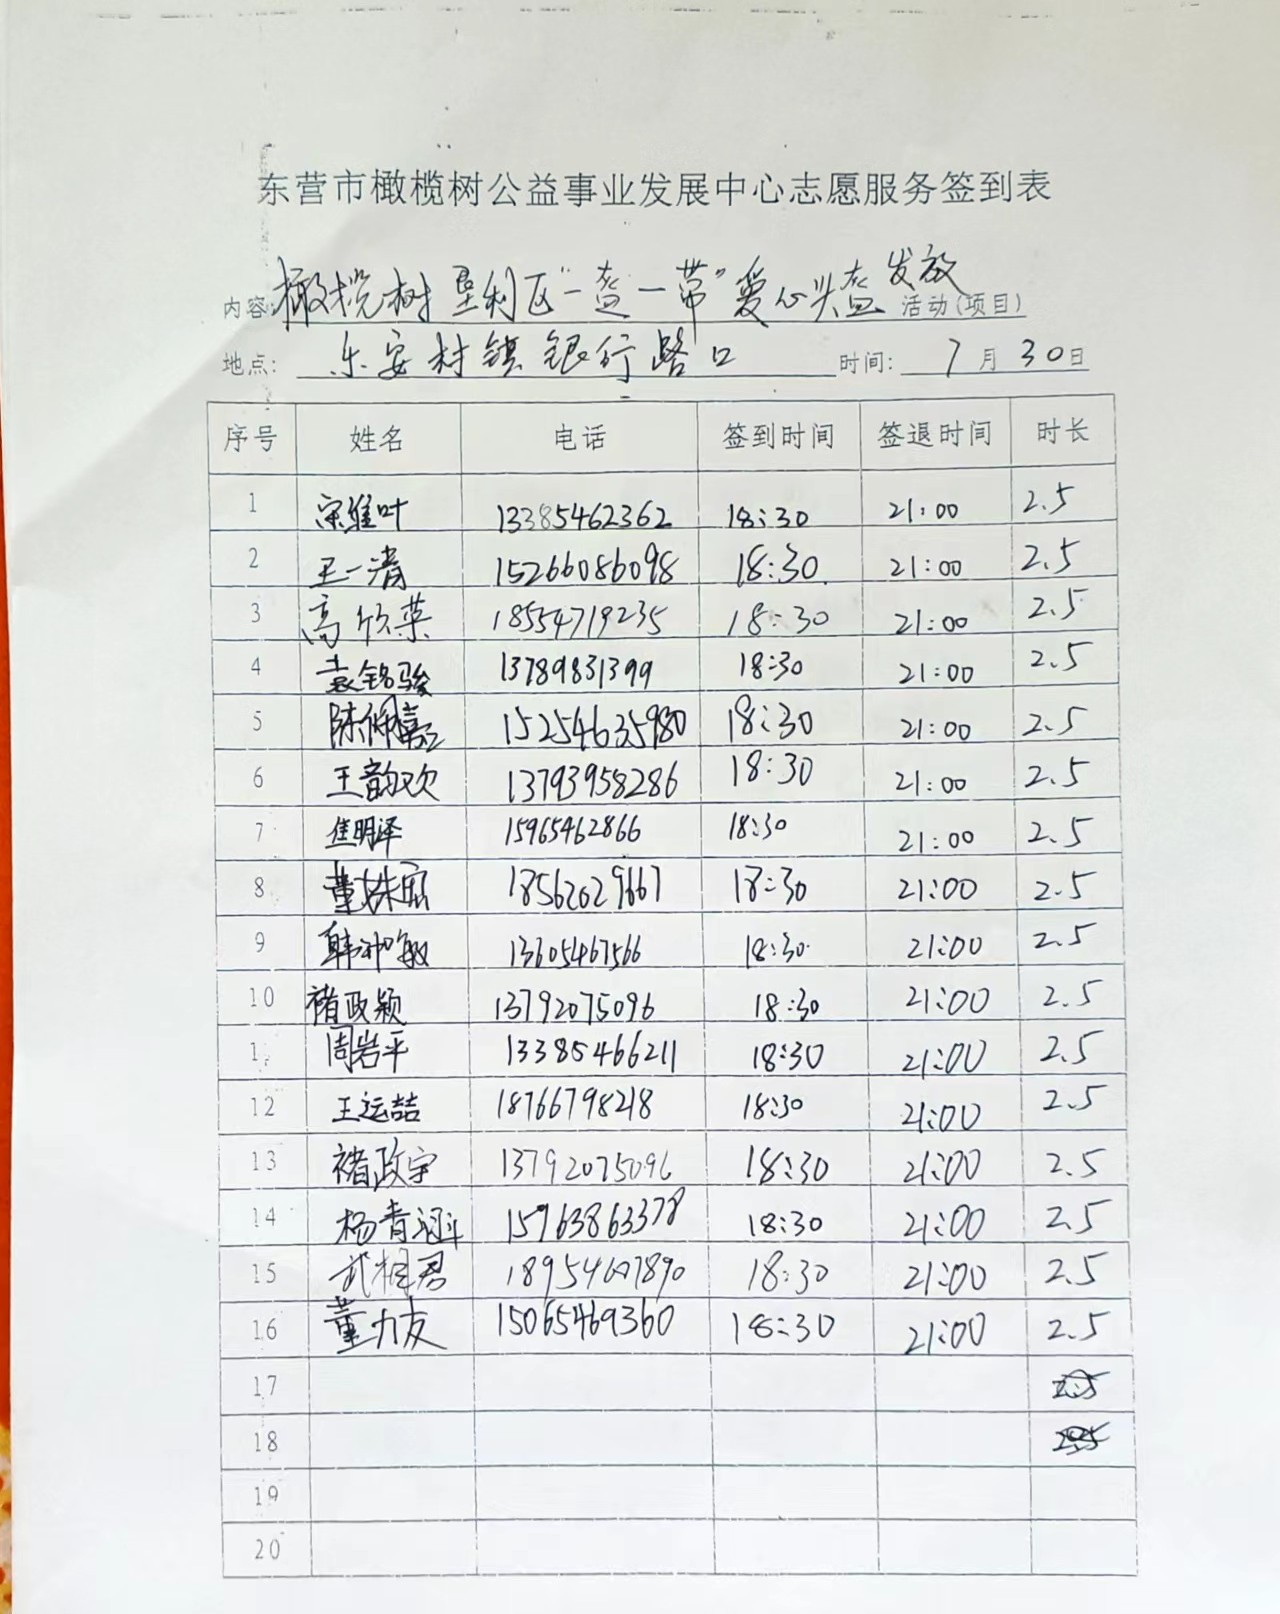 东营市橄榄树公益事业发展中心志愿服务签到表
内容:橄榄树垦利区“一盔一带”爱心头盔发放活动(项目)
地点: 乐安村镇银行路口 时间: 7月30日
序号 姓名 电话 签到时间 签退时间 时长
1 宋维叶 13385462362 18:30 21:00 2.5
2 王一清 15266086098 18:30 21:00 2.5
3 高欣荣 18554719235 18:30 21:00 2.5
4 袁铭骏 13789831399 18:30 21:00 2.5
5 陈佩 15254635980 18:30 21:00 2.5
6 王韵欢 13793958286 18:30 21:00 2.5
7 焦明泽 15965462866 18:30 21:00 2.5
8 董姝宸 18562029667 18:30 21:00 2.5
9 韩 敏 13605467566 18:30 21:00 2.5
10 褚政颖 13792075096 18:30 21:00 2.5
1 周岩平 13385466211 18:30 21:00 2.5
12 王运喆 18766798218 18:30 21:00 2.5
13 褚政宇 13792075096 18:30 21:00 2.5
14 杨青 15963863378 18:30 21:00 2.5
15 武 君 18954607890 18:30 21:00 2.5
16 董力友 15065469360 18:30 21:00 2.5
17
18
19
20